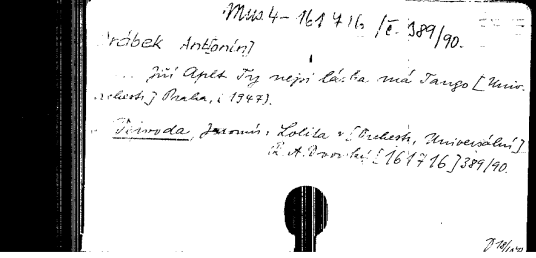 Mus. 4 - 161716 /č. 389/90.
rábek Antonín]
Jiří Aplt Ty nejsi láska má Tango [Univ.
orchestr.] Praha, 1947).
Jaromír, Lolita [Orchestr, Universální]
R. A. Dvorský [161716] 389/90.